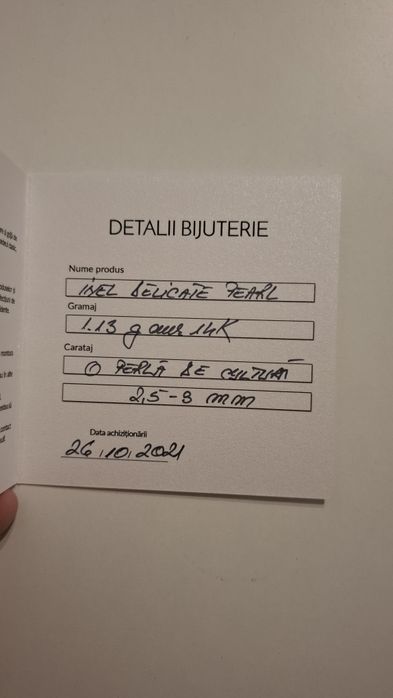 DETALII BIJUTERIE
Nume produs
INEL DELICATE PEARL
Gramaj
1.13 g aur 14K
Carataj
O PERLĂ DE CULTURĂ
2,5-3 mm
Data achiziționării
26.10.2021